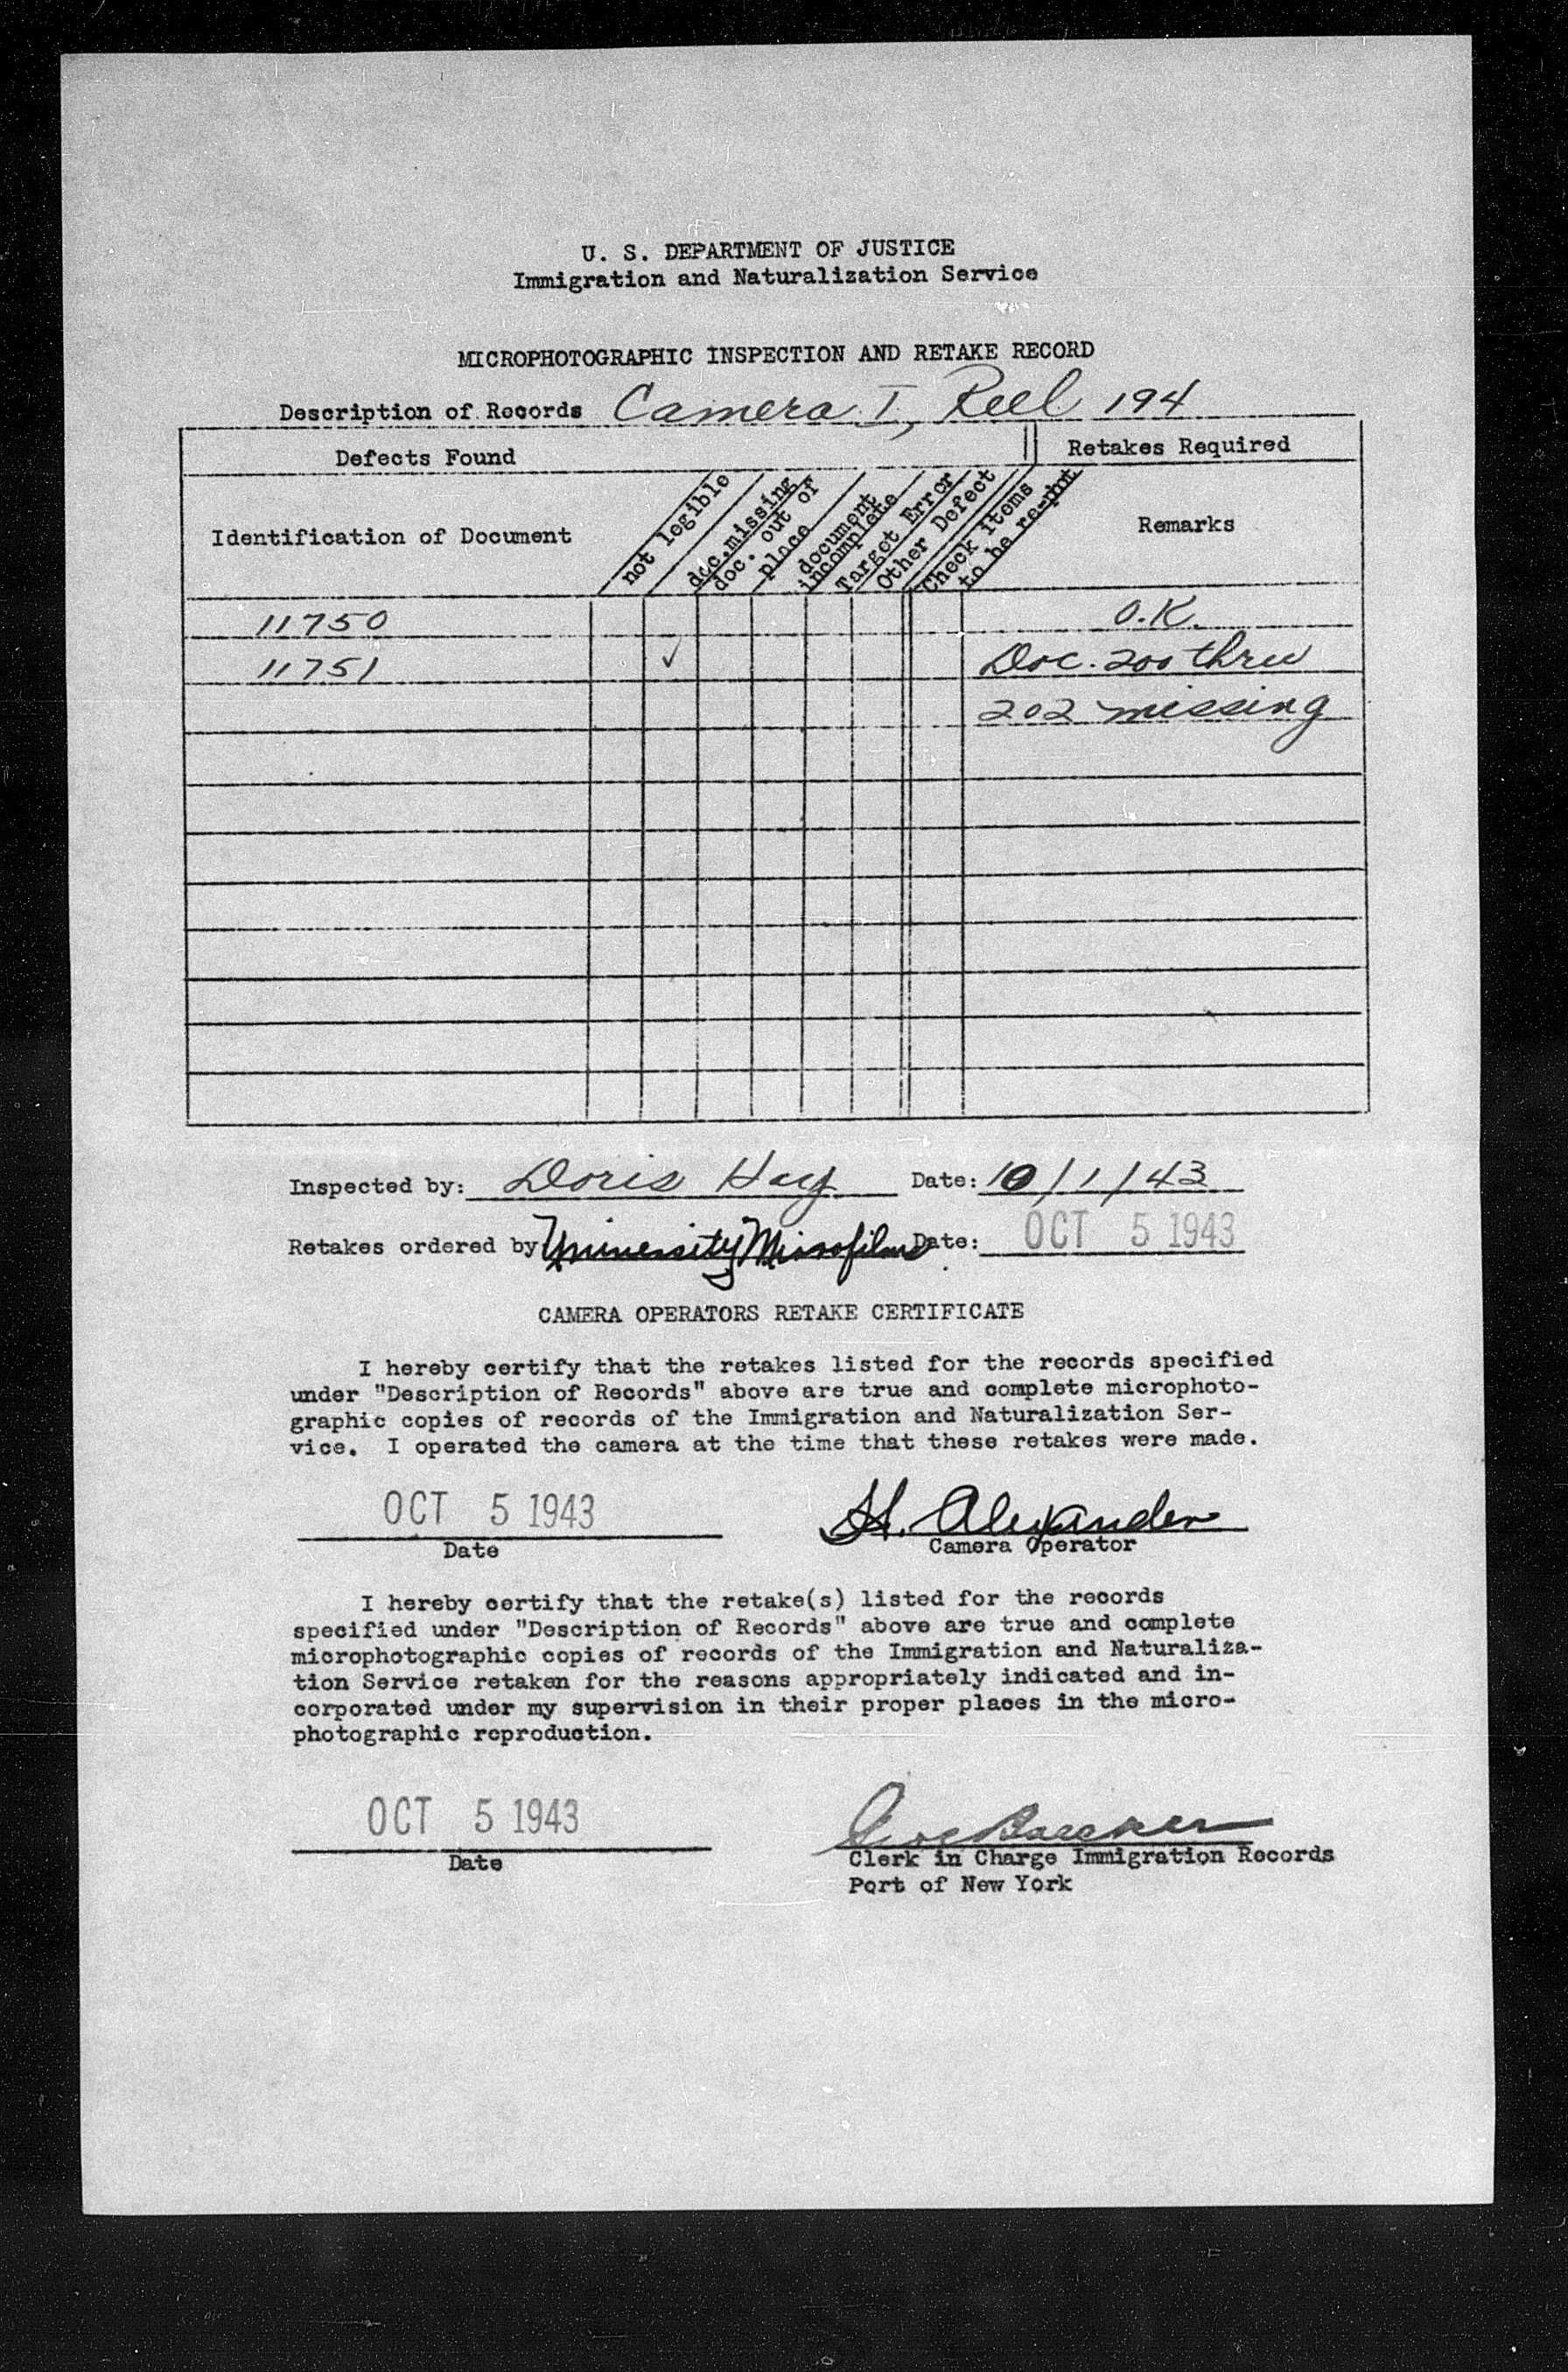 U. S. DEPARTMENT OF JUSTICE
Immigration and Naturalization Service
MICROPHOTOGRAPHIC INSPECTION AND RETAKE RECORD
Description of Records Camera I, Reel 194
Defects Found
Retakes Required
Identification of Document
not legible
doc. missing
doc. out of
place
document
incomplete
Target Error
Other Defect
Check Items
to be re-phot
Remarks
11750 O.K.
11751 ✓ Doc. 200 thru
202 missing
Inspected by: Doris Hay Date: 10/1/43
Retakes ordered by University Microfilms Date: OCT 5 1943
CAMERA OPERATORS RETAKE CERTIFICATE
I hereby certify that the retakes listed for the records specified
under "Description of Records" above are true and complete microphoto-
graphic copies of records of the Immigration and Naturalization Ser-
vice. I operated the camera at the time that these retakes were made.
OCT 5 1943 H. Alexander
Date Camera Operator
I hereby certify that the retake(s) listed for the records
specified under "Description of Records" above are true and complete
microphotographic copies of records of the Immigration and Naturaliza-
tion Service retaken for the reasons appropriately indicated and in-
corporated under my supervision in their proper places in the micro-
photographic reproduction.
OCT 5 1943
Date Clerk in Charge Immigration Records
Port of New York